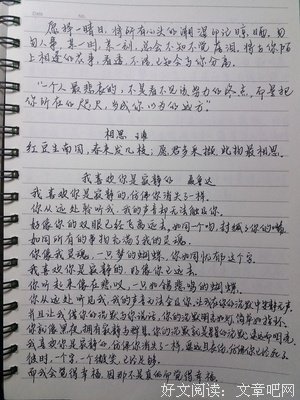 愿择一晴日，将所有心头的潮湿印记晾晒，旬
旬人事，某一时，某一刻，总会不知不觉落泪，将与你陌
上相逢的故事，看透，不说，已知会与你分离。
"一个人最悲哀的，不是看不见该努力的终点，而是把
你所在的咫尺，当成你以为的远方"
相思 王维
红豆生南国，春来发几枝；愿君多采撷，此物最相思。
我喜欢你是寂静的 聂鲁达
我喜欢你是寂静的，仿佛你消失了一样。
你从远处聆听我，我的声音却无法触及你。
好像你的双眼已经飞离远去，如同一个吻，封缄了你的嘴。
如同所有的事物充满了我的灵魂。
你像我灵魂，一只梦的蝴蝶，你如同忧郁这个字。
我喜欢你是寂静的，好像你已远去。
你听起来像在悲叹，一只如鸽悲鸣的蝴蝶。
你从远处听见我，我的声音无法企及你，让我在你的沉默中安静无声。
并且让我借你的沉默与你说话，你的沉默明亮如灯，简单如指环，
你就像黑夜，拥有寂静与群星。你的沉默就是星星的沉默，遥远而明亮。
我喜欢你是寂静的，仿佛你消失了一样，遥远且哀伤，仿佛你已经死了。
彼时，一个字，一个微笑，已经足够。
而我会觉得幸福，因那不是真的而觉得幸福。
好文阅读：文章吧网